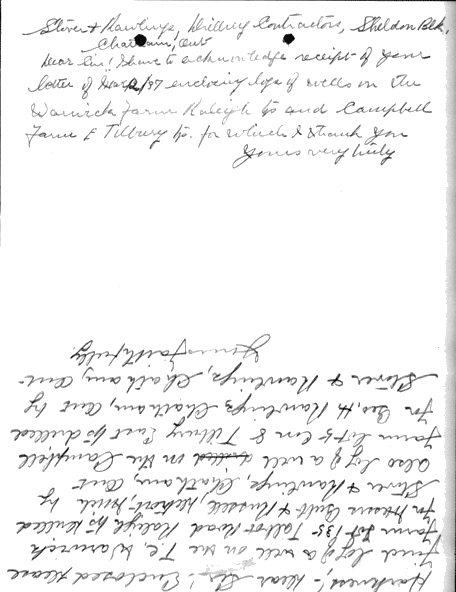 Stover & Rawlings, Drilling Contractors, Sheldon Blk,
Chatham, Ont
Dear Sir! I have to acknowledge receipt of your
letter of /37 enclosing logs of wells on the
Warwick Farm Raleigh tp and Campbell
Farm E Tilbury tp. for which I thank you
Yours very truly
Harkness,:- Dear Sir:- Enclosed please
find log of a well on the T.C. Warwick
Farm Lot 135 Talbot Road Raleigh tp drilled
for Messrs & Russell, Detroit, Mich by
Stover & Rawlings, Chatham, Ont
also log of a well drilled on the Campbell
Farm Lot 5 Con 8 Tilbury East tp drilled
for Geo. H. Rawlings Chatham, Ont by
Stover & Rawlings, Chatham, Ont
Yours faithfully.